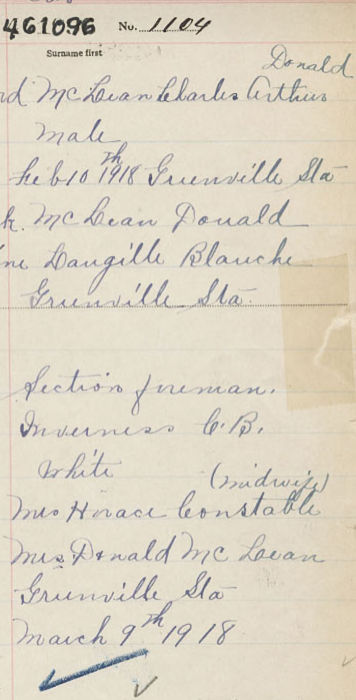 461096 No. 1104
Surname first
Donald
McLean Charles Arthur
Male
Feb 10th 1918 Greenville Sta
McLean Donald
Langille Blanche
Greenville Sta.
Section foreman.
Inverness C.B.
White
(midwife)
Mrs Horace Constable
Mrs. Donald McLean
Greenville Sta
March 9th 1918